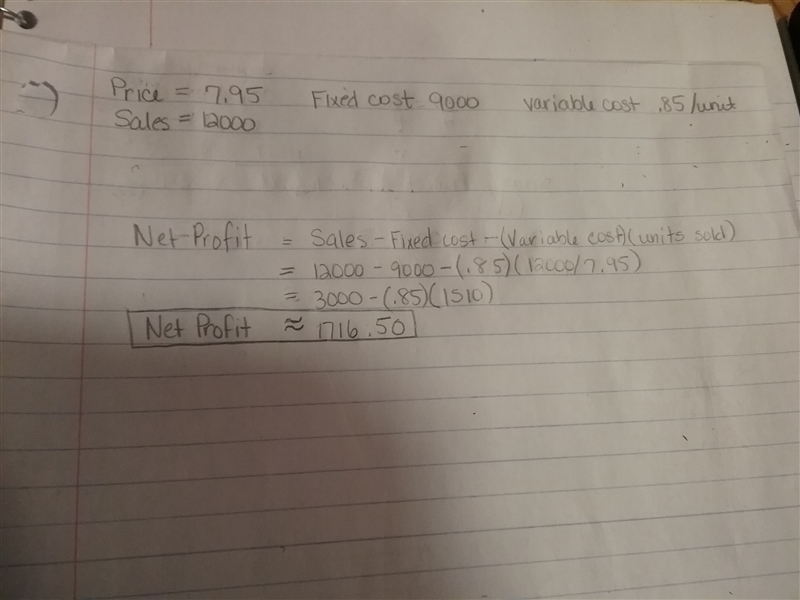 Price = 7.95 Fixed cost 9000 variable cost .85/unit
Sales = 12000
Net Profit = Sales - Fixed cost - (Variable cost)(units sold)
= 12000 - 9000 - (.85)(12000/7.95)
= 3000 - (.85)(1510)
Net Profit ≈ 1716.50